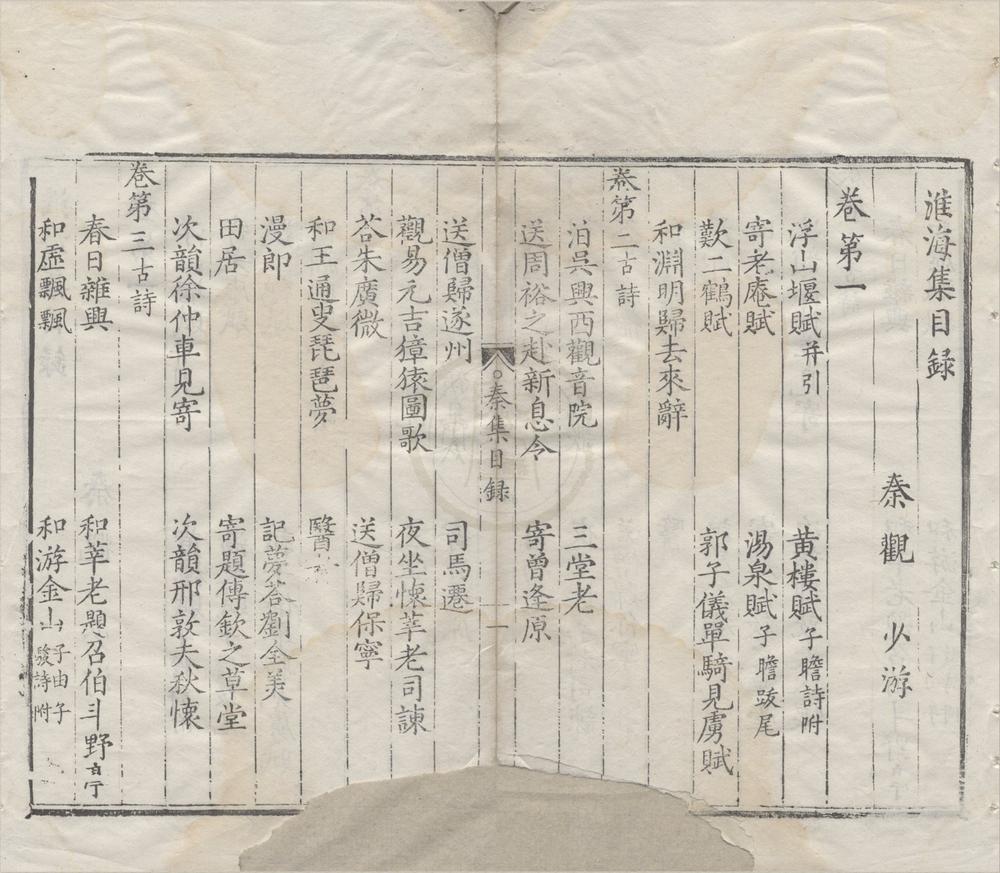 淮海集目録
秦觀 少游
卷第一
浮山堰賦并引 黄樓賦子瞻詩附
寄老庵賦 湯泉賦子瞻跋尾
歎二鶴賦 郭子儀單騎見虜賦
和淵明歸去來辭
卷第二古詩
泊吳興西觀音院 三堂老
送周裕之赴新息令 寄曾逢原
秦集目録 一
送僧歸遂州 司馬遷
觀易元吉獐猿圖歌 夜坐懷莘老司諫
荅朱廣微 送僧歸保寧
和王通叟琵琶夢 醫
漫郎 記夢荅劉全美
田居 寄題傳欽之草堂
次韻徐仲車見寄 次韻邢敦夫秋懷
卷第三古詩
春日雜興 和莘老題召伯斗野
和虛飄飄 和游金山子由子駿詩附